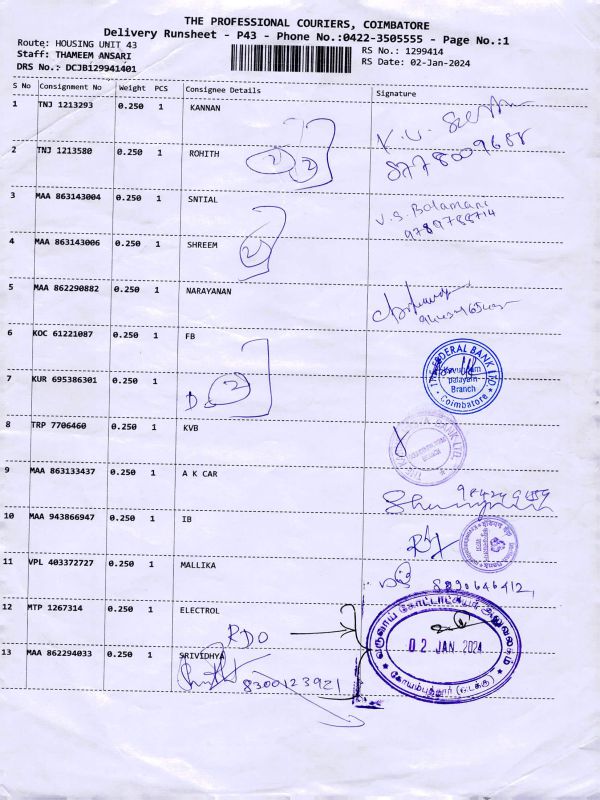 THE PROFESSIONAL COURIERS, COIMBATORE
Delivery Runsheet - P43 - Phone No.:0422-3505555 - Page No.:1
Route: HOUSING UNIT 43
Staff: THAMEEM ANSARI
DRS No.: DCJB129941401
RS No.: 1299414
RS Date: 02-Jan-2024
S No Consignment No Weight PCS Consignee Details Signature
1 TNJ 1213293 0.250 1 KANNAN
8778009688
2 TNJ 1213580 0.250 1 ROHITH
2 2
3 MAA 863143004 0.250 1 SNTIAL
V.S. Balamani
9789788714
4 MAA 863143006 0.250 1 SHREEM
2
5 MAA 862290882 0.250 1 NARAYANAN
6 KOC 61221087 0.250 1 FB
THE FEDERAL BANK LTD
palayam
Branch
Coimbatore
7 KUR 695386301 0.250 1
D 2
8 TRP 7706460 0.250 1 KVB
9 MAA 863133437 0.250 1 A K CAR
10 MAA 943866947 0.250 1 IB
11 VPL 403372727 0.250 1 MALLIKA
8890646412
12 MTP 1267314 0.250 1 ELECTROL
RDO
வருவாய் கோட்டாட்சியர் அலுவலகம்
02 JAN 2024
கோயம்புத்தூர் (வடக்கு)
13 MAA 862294033 0.250 1 SRIVIDHYA
8300123921